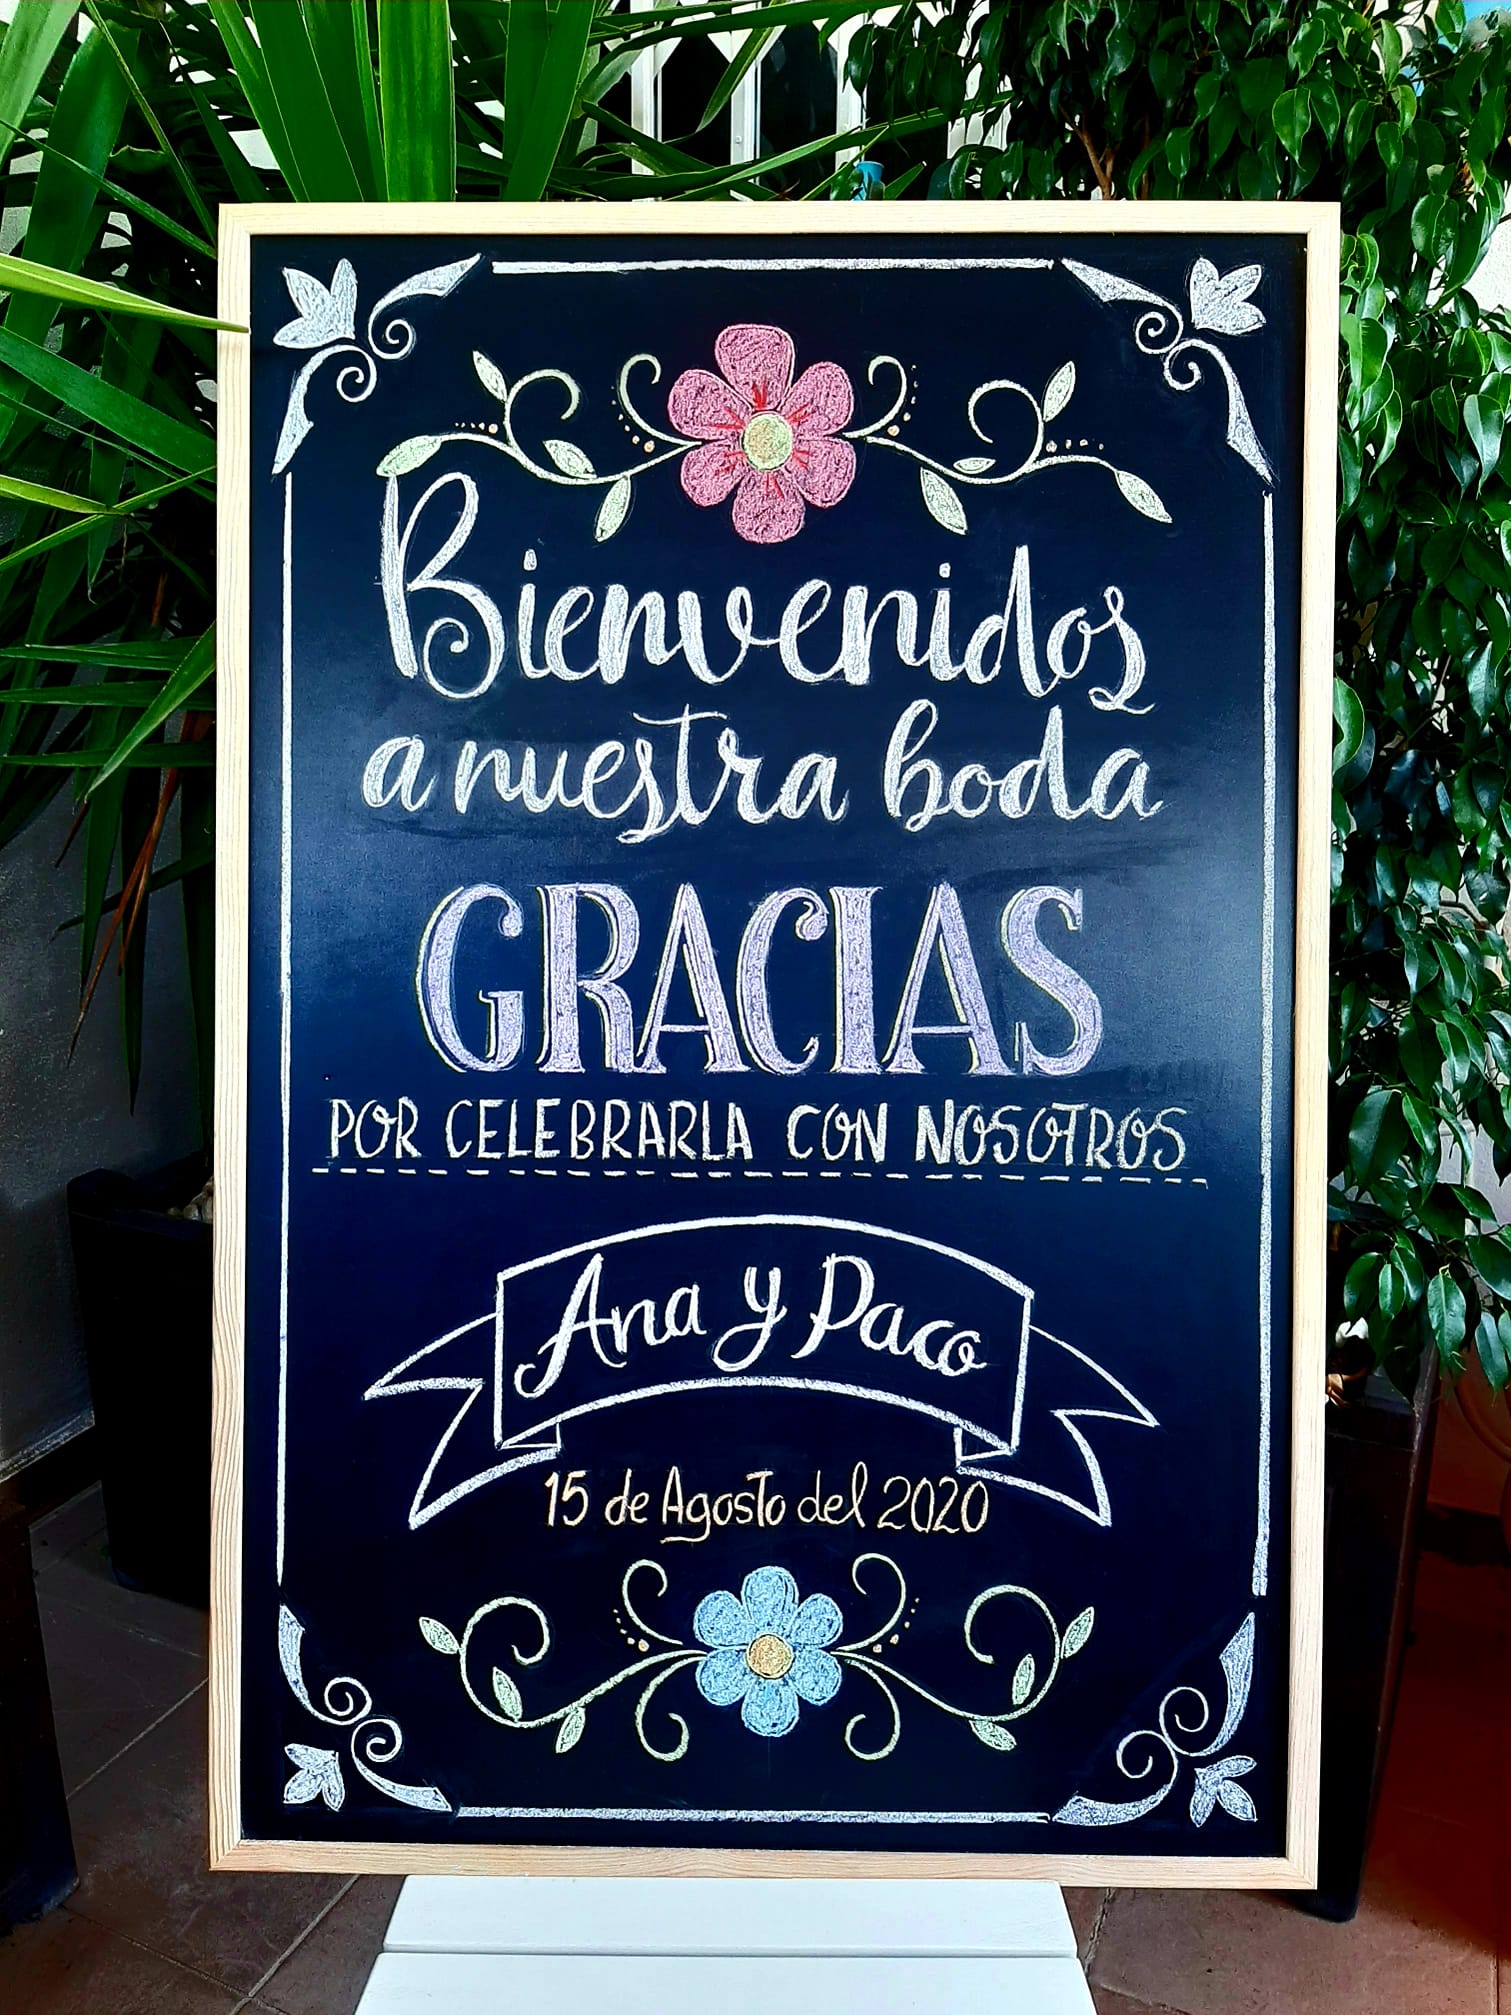 Bienvenidos
a nuestra boda
GRACIAS
POR CELEBRARLA CON NOSOTROS
Ana y Paco
15 de Agosto del 2020